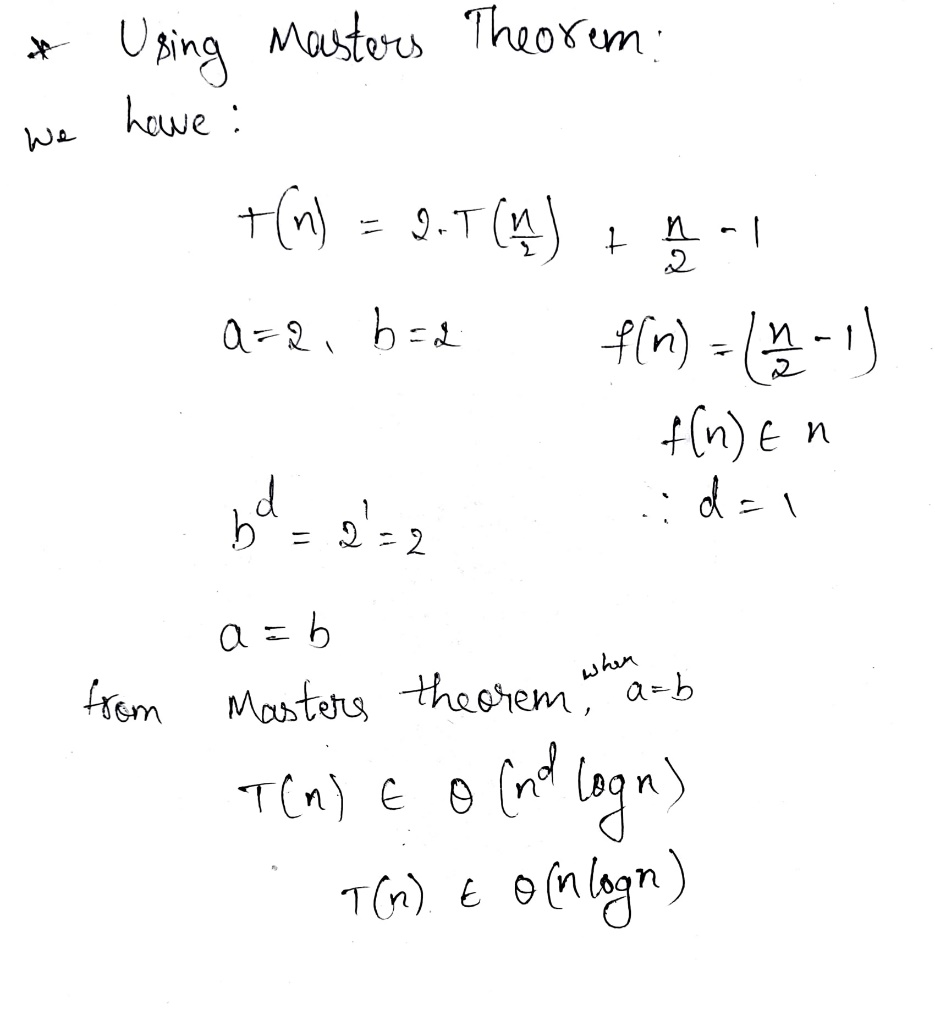 * Using Masters Theorem:
we have:
T(n) = 2.T(n/2) + n/2 - 1
a=2, b=2 f(n) = (n/2 - 1)
f(n) ∈ n
b^d = 2^1 = 2 ∴ d=1
a = b
from Masters theorem, when a=b
T(n) ∈ θ(n^d logn)
T(n) ∈ θ(n logn)